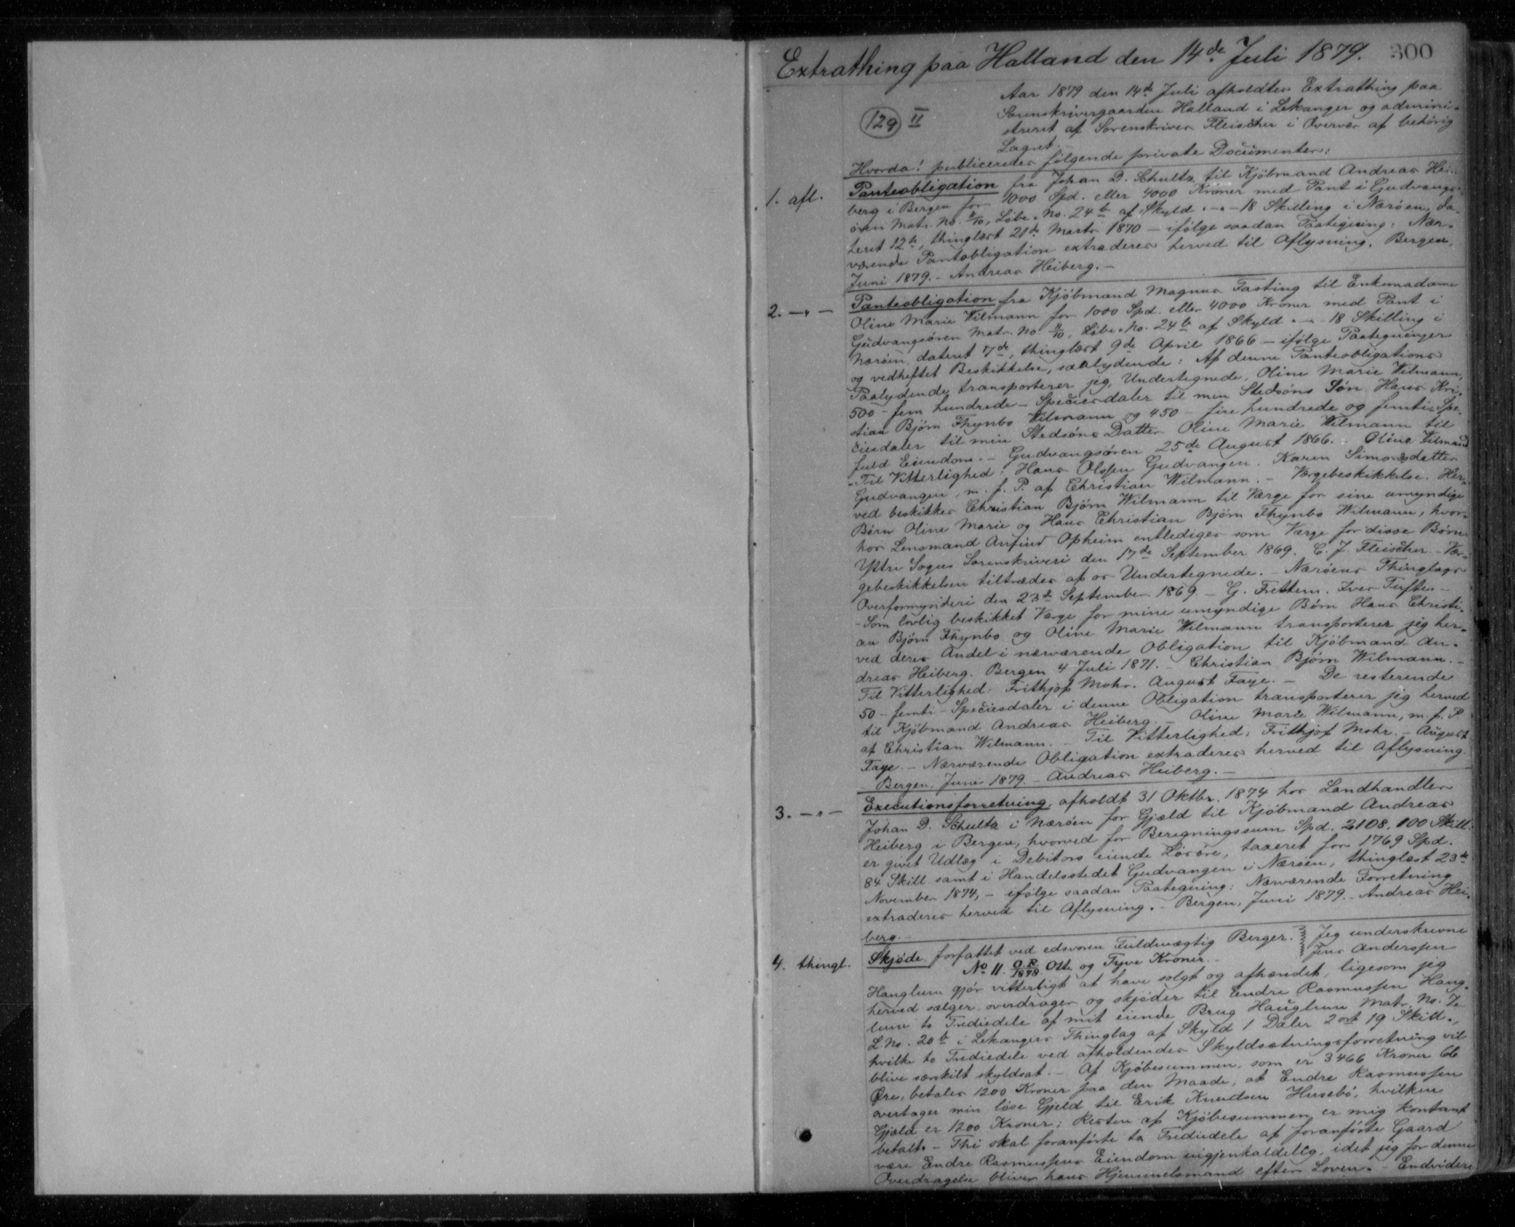 Extrathing paa Halland den 14de Juli 1879. 300
129 II
Aar 1879 den 14de Juli afholdtes Extrathing paa
Sorenskrivergaarden Halland i Lekanger og admini-
streret af Sorenskriver Fleischer i Overvær af behörig
Lagret.
Hvorda! publiceredes følgende private Documenter:
1. afl. Panteobligation fra Johan D. Schultz til Kjöbmand Andreas Hei-
berg i Bergen for 1000 Spd. eller 4000 Kroner med Pant i Gudvangs-
ören Matr. No. Löbe No. 24b af Skyld -"- 18 Skilling i Næröen, da-
teret 12te, thinglæst 21de Marts 1870 - ifølge saadan Paategning: Nær-
værende Pantobligation extraderes herved til Aflysning. Bergen,
Juni 1879. - Andreas Heiberg. -
2. -"- Panteobligation fra Kjöbmand Magnus Fasting til Enkemadame
Oline Marie Wilmann for 1000 Spd. eller 4000 Kroner med Pant i
Gudvangsören Matr. No. Löbe No. 24b af Skyld -"- 18 Skilling i
Næröen, dateret 7de, thinglæst 9de April 1866 - ifølge Paategninger
og vedheftet Beskikkelse, saalydende: Af denne Panteobligations
Paalydende transporterer jeg Undertegnede, Oline Marie Wilmann,
500 - fem hundrede - Speciesdaler til min Stedsöns Sön Hans Kri-
stian Björn Thynbo Wilmann og 450 - fire hundrede og femti - Spe-
ciesdaler til min Stedsöns Datter Oline Marie Wilmann til
fuld Eiendom. - Gudvangsören 25de August 1866. Oline Wilmann
- Til Vitterlighed: Hans Olsen Gudvangen. Karen Simonsdatter
Gudvangen, m. f. P. af Christian Wilmann. - Værgebeskikkelse. Her-
ved beskikkes Christian Björn Wilmann til Værge for sine umyndige
Börn Oline Marie og Hans Christian Björn Thynbo Wilmann, hvor-
hos Lensmand Anfind Opheim entlediges som Værge for disse Börn
Ytre Sogns Sorenskriveri den 17de September 1869. C. J. Fleischer. - Vær-
gebeskikkelsen tiltrædes af os Undertegnede. - Næröens Thinglags
Overformynderi den 23de September 1869 - G. Frettem. Iver Tufte -
- Som lovlig beskikket Værge for mine umyndige Börn Hans Christi-
an Björn Thynbo og Oline Marie Wilmann transporterer jeg her-
ved deres Andel i nærværende Obligation til Kjöbmand An-
dreas Heiberg. Bergen 4 Juli 1871. - Christian Björn Wilmann. -
Til Vitterlighed: Frithjof Mohr. August Faye. - De resterende
50 - femti - Speciesdaler i denne Obligation transporterer jeg herved
til Kjöbmand Andreas Heiberg. - Oline Marie Wilmann, m. f. P.
af Christian Wilmann. - Til Vitterlighed: Frithjof Mohr. - August
Faye. - Nærværende Obligation extraderes herved til Aflysning.
Bergen, Juni 1879. - Andreas Heiberg. -
3. -"- Executionsforretning afholdt 31 Oktbr. 1874 hos Landhandler
Johan D. Schultz i Næröen for Gjæld til Kjöbmand Andreas
Heiberg i Bergen, hvorved for Beregningssum Spd. 2108. 100 Skill.
er givet Udlæg i Debitors eiende Lösöre, taxeret for 1769 Spd.
84 Skill samt i Handelsstedet Gudvangen i Næröen, thinglæst 23de
November 1874, - ifølge saadan Paategning: Nærværende Forretning
extraderes herved til Aflysning. - Bergen, Juni 1879. - Andreas Hei-
berg. -
4. thingl. Skjöde forfattet ved edsvoren Fuldmægtig Berger. Jeg underskrevne
No 11. 1879 Ott. og Tyve Kroner. - Jens Andersen
Hauglum gjör vitterligt at have solgt og afhændet, ligesom jeg
herved sælger overdrager og skjöder til Endre Rasmussen Haug-
lum to Trediedele af mit eiende Brug Hauglum Matr. No. 7,
L No. 20b i Lekangers Thinglag af Skyld 1 Daler 2 ort 19 Skill.,
hvilke to Trediedele ved afholdendes Skyldsætningsforretning vil
blive særskilt skyldsat. - Af Kjöbesummen, som er 3466 Kroner 66
Öre, betales 1200 Kroner paa den Maade, at Endre Rasmussen
overtager min löse Gjeld til Erik Knudsen Husebö, hvilken
Gjæld er 1200 Kroner; Resten af Kjöbesummen er mig kontant
betalt. - Thi skal foranförte to Trediedele af foranförte Gaard
være Endre Rasmussens Eiendom uigjenkaldelig, idet jeg for denne
Overdragelse bliver hans Hjemmelsmand efter Loven. - Endvidere